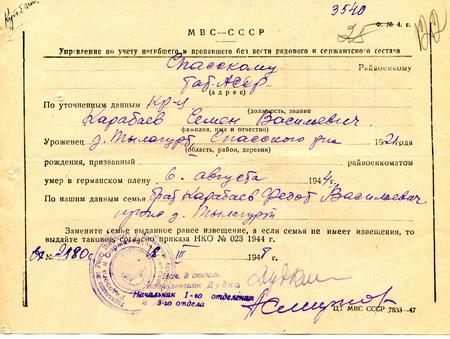 3540
МВС–СССР
Ф. № 4. г.
Управление по учету погибшего и пропавшего без вести рядового и сержантского состава
Спасскому Райвоенкому
Тат. АССР.
(адрес)
По уточненным данным кр-ц
(должность, звание
Карабаев Семен Васильевич
фамилия, имя и отчество)
Уроженец Спасского р-на 1921 года
(область, район, деревня)
рождения, призванный райвоенкоматом
умер в германском плену 6. августа 1944 г.
По нашим данным семья: брат Карабаев Федот Васильевич
Замените семье выданное ранее извещение, а если семья не имеет извещения, то
выдайте таковое, согласно приказа НКО № 023 1944 г.
№ 2180 III 1948 г.
Нач. 3 отдела
подполковник Дудка
Начальник 1-го отделения
3-го отдела
ЦТ МВС СССР 7833—47